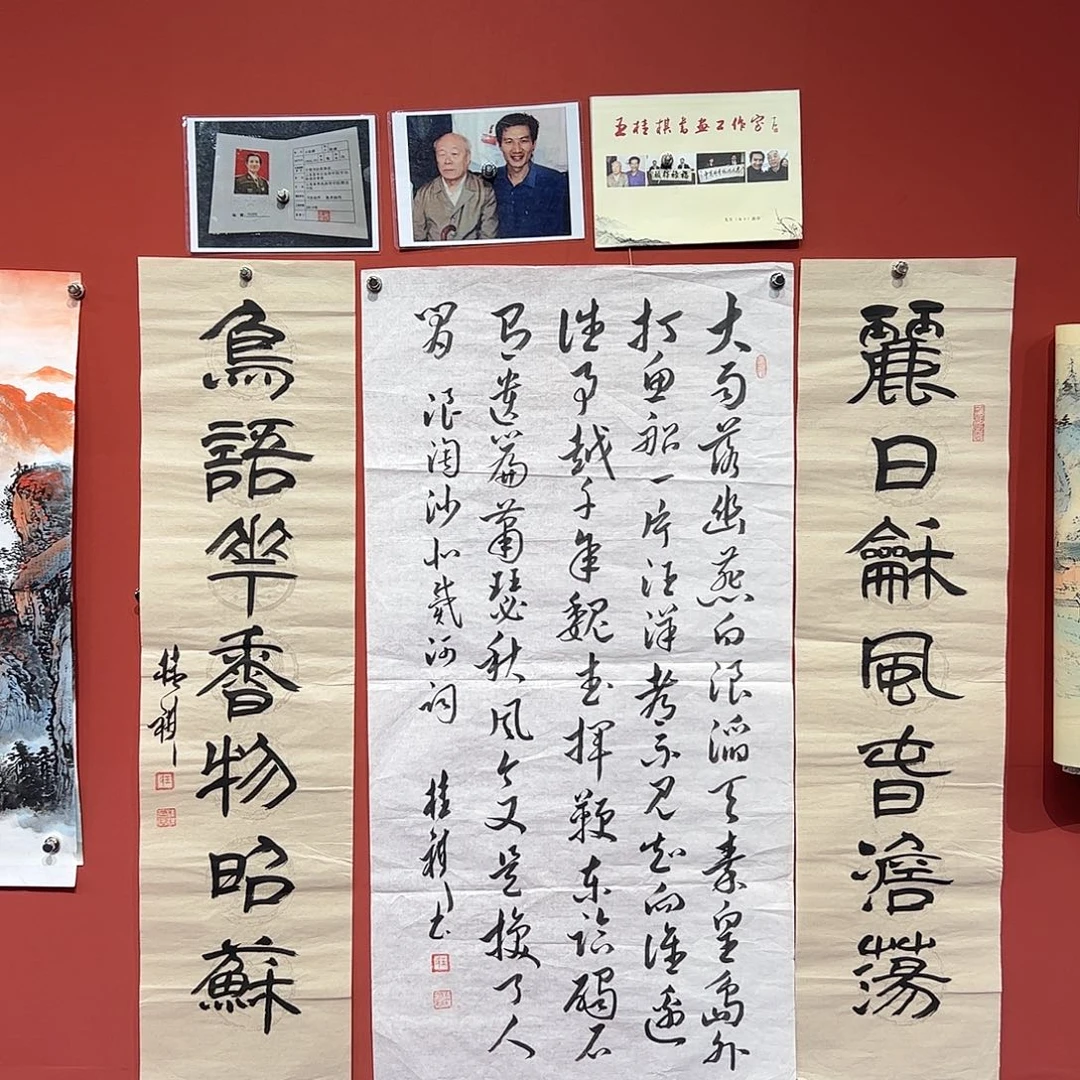 桂棋书画工作室
麗日龢風旾澹蕩
大雨落幽燕白浪滔天秦皇島外
打魚船一片汪洋都不见知向谁邊
往事越千年魏武揮鞭东临碣石
有遗篇蕭瑟秋风今又是换了人
間 浪淘沙北戴河词 桂祺书
鳥語華香物昭蘇
桂祺